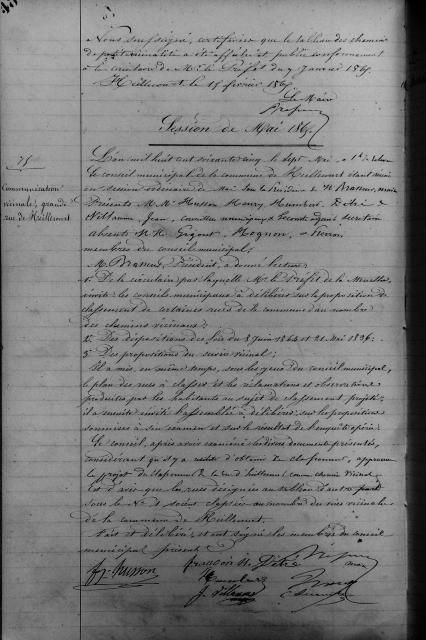 Nous soussigné, certifions que le tableau des chemins
de petite vicinalité a été affiché et publié conformément
à la circulaire de M. le Préfet du 7 Janvier 1865.
Heillecourt le 15 février 1865
Le Maire
Session de Mai 1865.
75
Communication
vicinale, grande
rue de Heillecourt
L'an mil huit cent soixante cinq le sept Mai, à 1h de
le conseil municipal de la commune de Heillecourt étant réuni
en session ordinaire de Mai sous la Présidence de M Brasseur, maire
Présents M. M. Husson Henry Humbert
Jean, Conseillers municipaux &
absents M. M. Gigout, Mognon, &
membres du conseil municipal;
M. Brasseur, Président, a donné lecture:
1° De la circulaire par laquelle M. le Préfet de la Meurthe
invite les conseils municipaux à délibérer sur la proposition de
classement de certaines rues de la commune au nombre
des chemins vicinaux;
2° Des dispositions des lois du 8 Juin 1864 et 21 Mai 1836;
3° Des propositions du service vicinal;
Il a mis, en même temps, sous les yeux du conseil municipal,
le plan des rues à classer et les réclamations et observations
produites par les habitants au sujet du classement projeté;
il a ensuite invité l'assemblée à délibérer sur les propositions
soumises à son examen et sur le résultat de l'enquête opérée.
Le Conseil, après avoir examiné les divers documents présentés,
considérant qu'il y a d'obtenir le classement, approuve
le projet de classement de la rue d'Heillecourt comme chemin vicinal,
est d'avis que les rues désignées au tableau d'autre part
sous le N° 1 soient classées au nombre des rues vicinales
de la commune de Heillecourt.
Fait et délibéré, et ont signé les membres du conseil
municipal présents
Husson